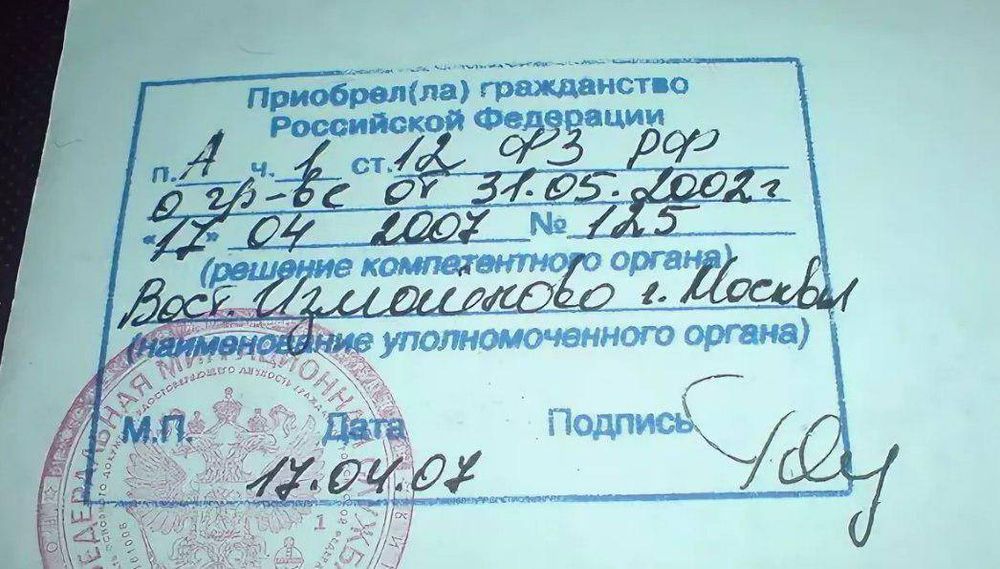 Приобрел(ла) гражданство
Российской Федерации
п. А ч. 1 ст. 12 ФЗ РФ
о гр-ве от 31.05.2002г
"17" 04 2007 № 125
(решение компетентного органа)
Вост. Измайлово г. Москвы
(наименование уполномоченного органа)
М.П. Дата Подпись
17.04.07
ФЕДЕРАЛЬНАЯ МИГРАЦИОННАЯ СЛУЖБА
1